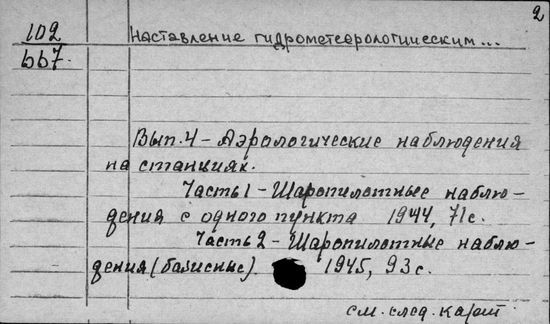 2
102
667.
Наставление гидрометеорологическим...
Вып. 4 - Аэрологические наблюдения
на станциях.
Часть 1 - Шаропилотные наблю-
дения с одного пункта 1944, 71 с.
Часть 2 - Шаропилотные наблю-
дения (базисные). 1945, 93 с.
см. след. карт